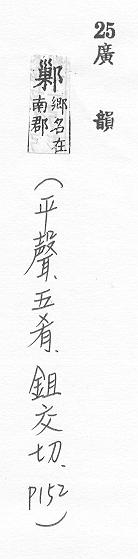 25
廣韻
鄛 鄉名在南郡
(平聲、五肴、鉏交切、P152)